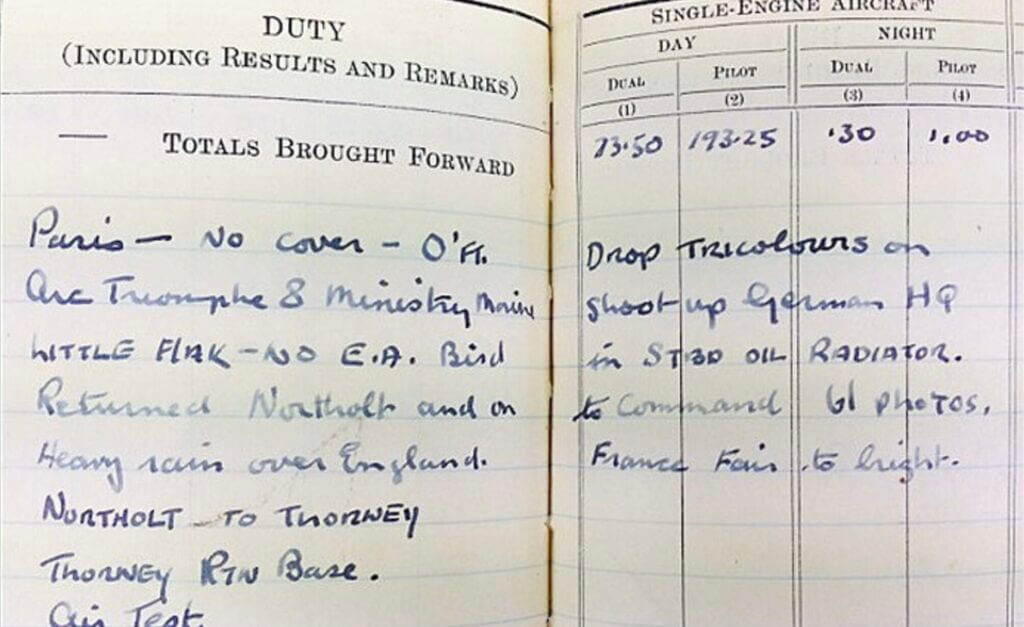 DUTY
(INCLUDING RESULTS AND REMARKS)
SINGLE-ENGINE AIRCRAFT
DAY NIGHT
DUAL PILOT DUAL PILOT
(1) (2) (3) (4)
— TOTALS BROUGHT FORWARD 73.50 193.25 .30 1.00
Paris — No cover – O'Ft. Drop Tricolours on
Arc Triomphe & Ministry Marine shoot up German HQ
LITTLE FLAK – NO E.A. Bird in STBD OIL RADIATOR.
Returned Northolt and on to Command 61 photos.
Heavy rain over England. France Fair to bright.
NORTHOLT TO THORNEY
THORNEY RTN Base.
Air Test.